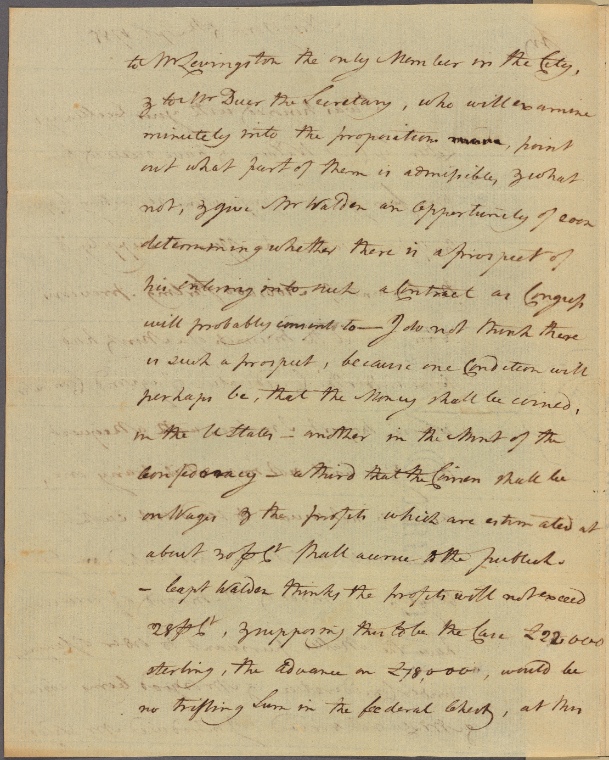 to Mr Levingston the only Member in the City,
& to Mr Duer the Secretary, who will examine
minutely into the propositions, point
out what part of them is admissible, & what
not, & give Mr Walden an Oppertunity of soon
determining whether there is a prospect of
his entering into such a Contract as Congress
will probably consent to — I do not think there
is such a prospect, because one Condition will
perhaps be, that the Money shall be coined,
in the U States – another in the Mint of the
Confederacy – a third that the Coiner shall be
on Wages & the profits which are estimated at
about 30 P Ct shall accrue to the publick.
– Capt Walden thinks the profits will not exceed
28 P Ct, & supposing this to be the Case £22,000
sterling, the advance on £78000, would be
no trifling Sum in the federal Chest, at this